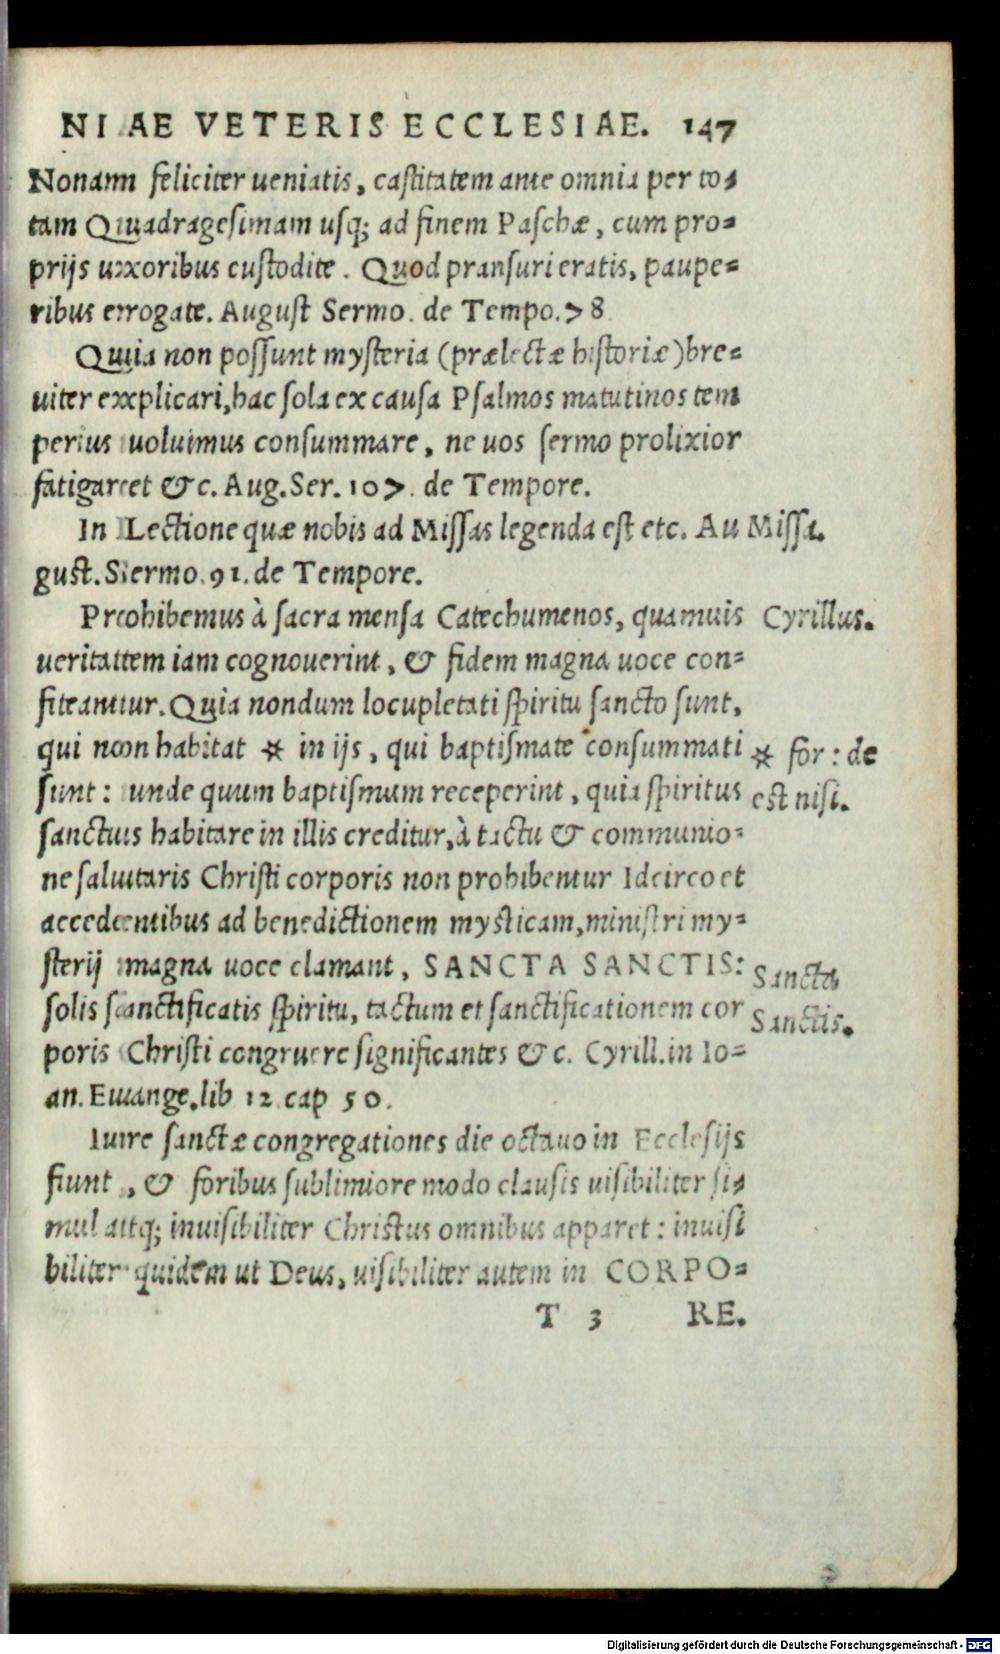 NIAE VETERIS ECCLESIAE. 147
Nonam feliciter ueniatis, castitatem ante omnia per to-
tam Quadragesimam usq; ad finem Paschæ, cum pro-
prijs uxoribus custodite. Quod pransuri eratis, paupe-
ribus errogate. August Sermo. de Tempo. 78
Quia non possunt mysteria (prælectæ historiæ) bre-
uiter explicari, hac sola ex causa Psalmos matutinos tem
perius uoluimus consummare, ne uos sermo prolixior
fatigaret &c. Aug. Ser. 107. de Tempore.
In Lectione quæ nobis ad Missas legenda est etc. Au Missa.
gust. Sermo. 91. de Tempore.
Prohibemus à sacra mensa Catechumenos, quamuis Cyrillus.
ueritatem iam cognouerint, & fidem magna uoce con-
fiteantur. Quia nondum locupletati spiritu sancto sunt,
qui non habitat * in ijs, qui baptismate consummati * for: de
sunt: unde quum baptismum receperint, quia spiritus est nisi.
sanctus habitare in illis creditur, à tactu & communio-
ne salutaris Christi corporis non prohibentur Idcirco et
accedentibus ad benedictionem mysticam, ministri my-
sterij magna uoce clamant, SANCTA SANCTIS: Sancta
solis sanctificatis spiritu, tactum et sanctificationem cor Sanctis.
poris Christi congruere significantes &c. Cyrill. in Io-
an. Euange. lib 12 cap 50.
Iure sanctæ congregationes die octauo in Ecclesijs
fiunt, & foribus sublimiore modo clausis uisibiliter si-
mul atq; inuisibiliter Christus omnibus apparet: inuisi
biliter quidem ut Deus, uisibiliter autem in CORPO-
T 3 RE.
Digitalisierung gefördert durch die Deutsche Forschungsgemeinschaft - DFG